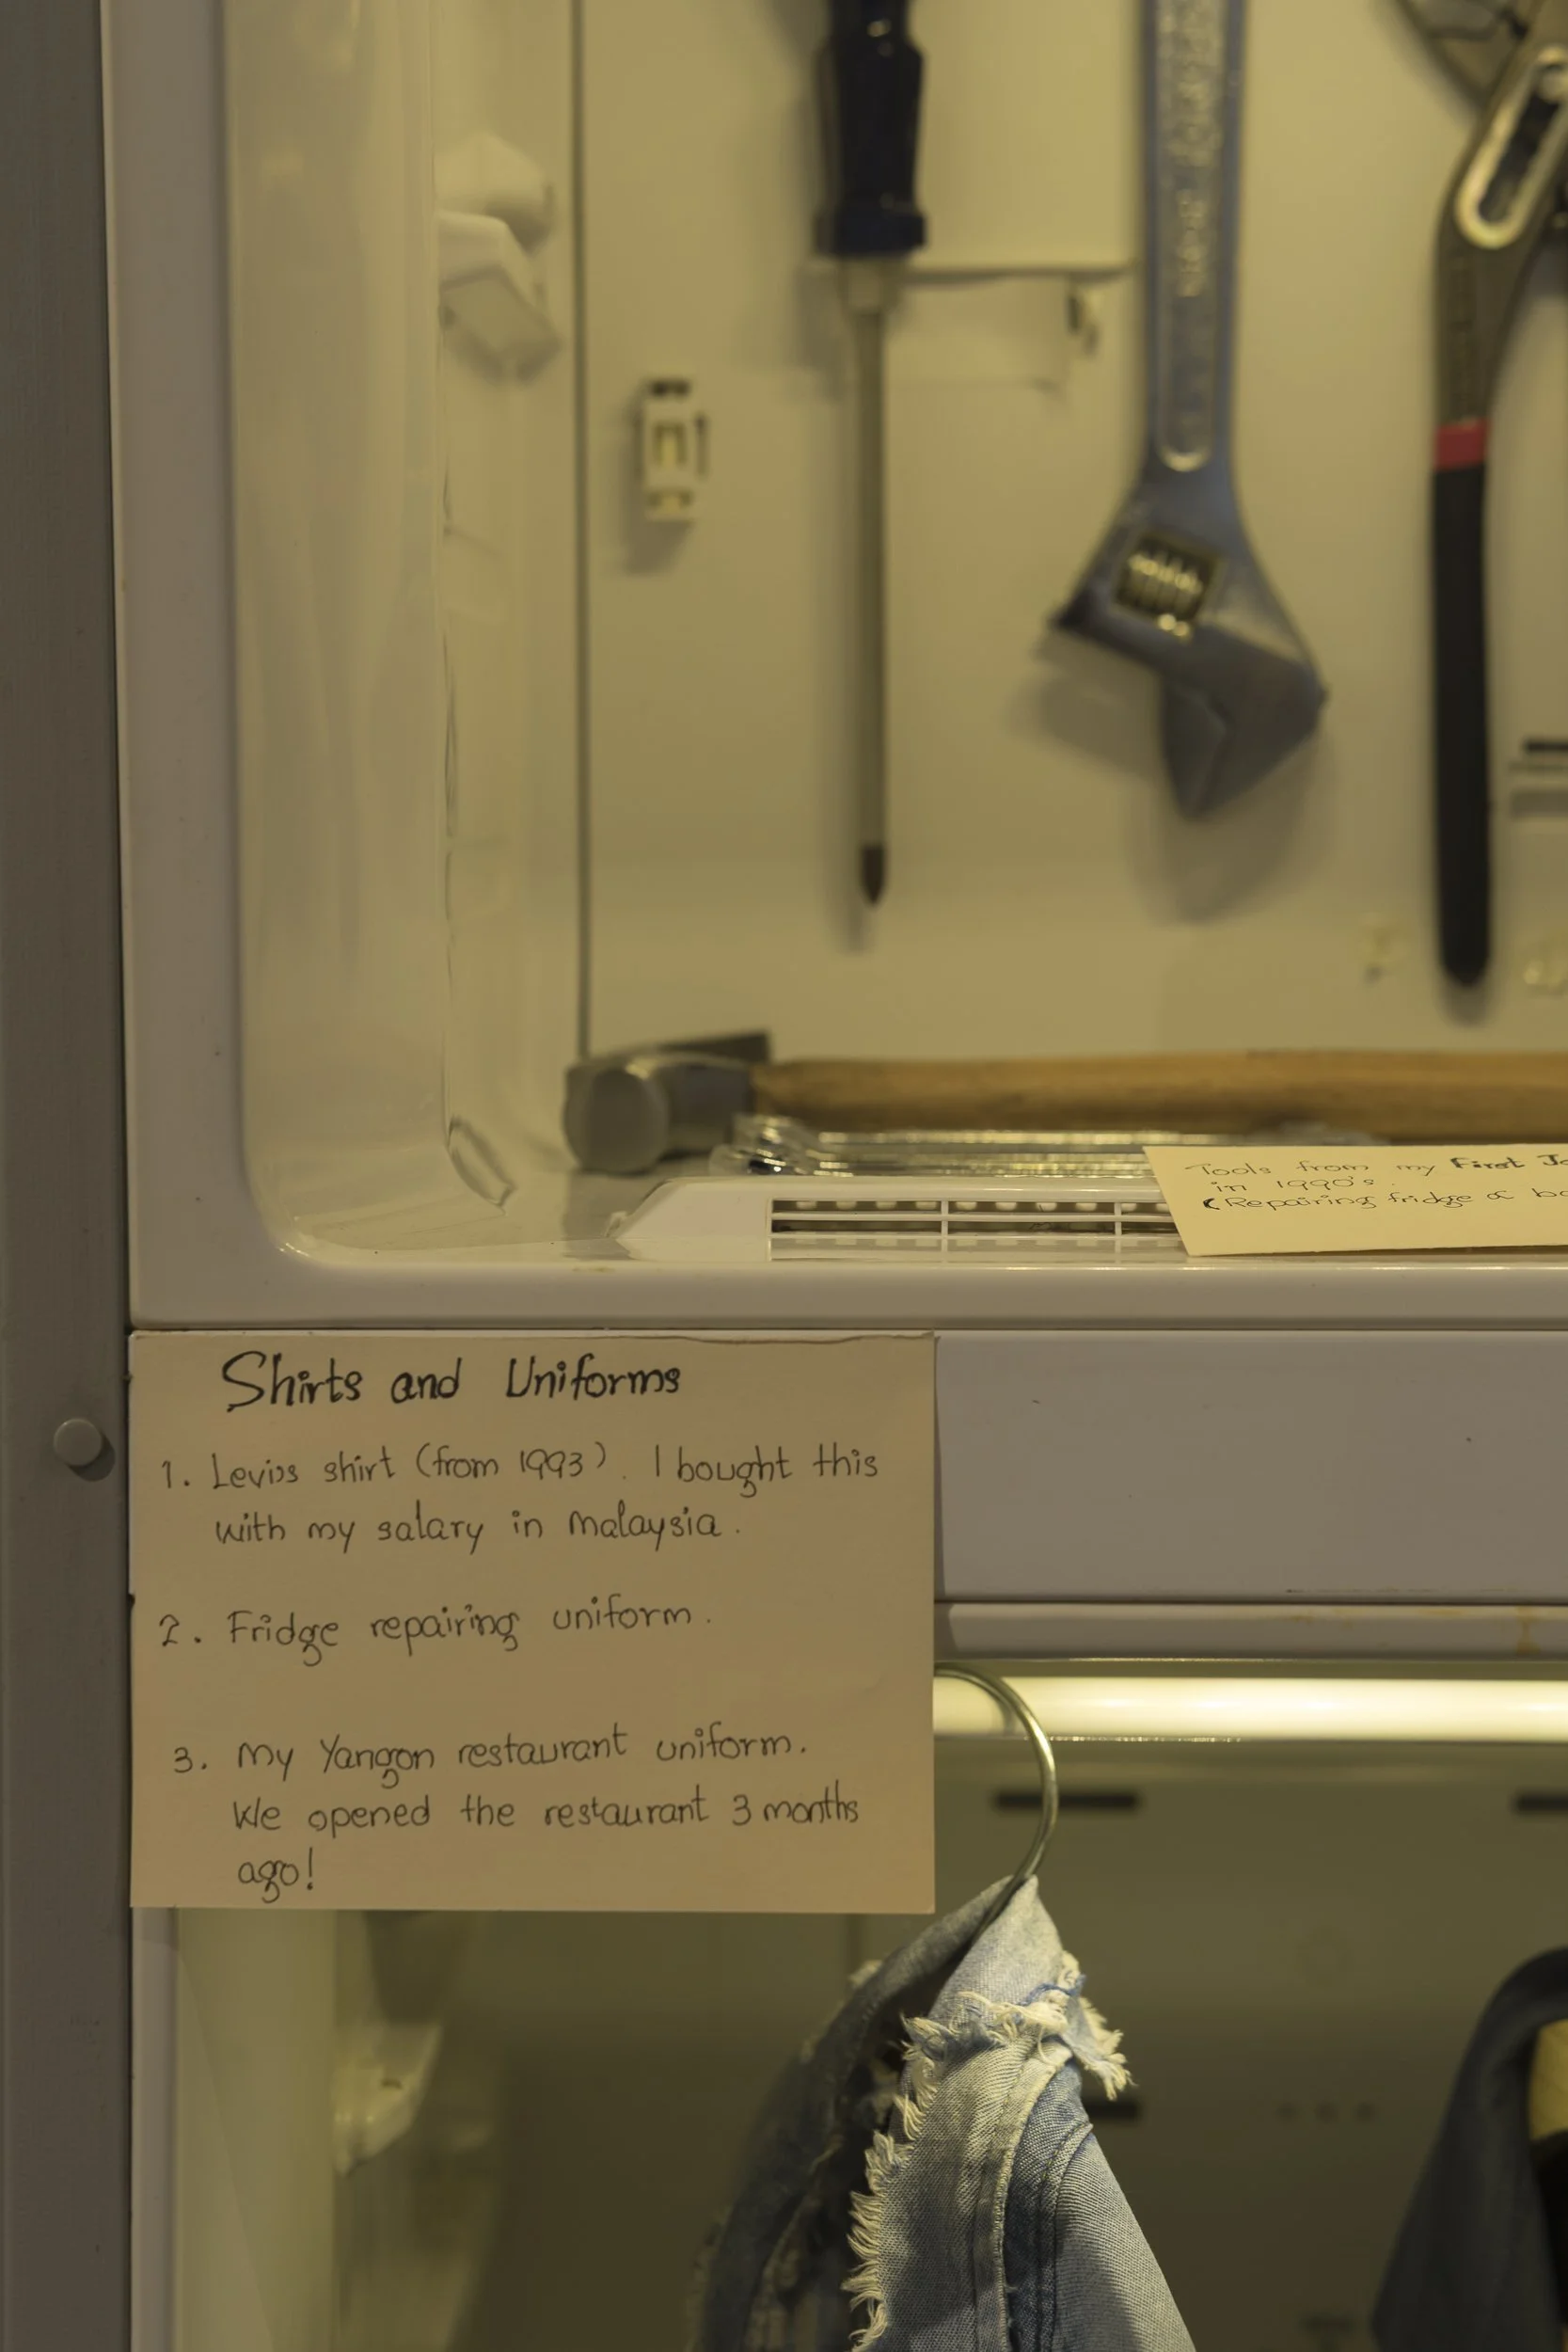 Tools from my First
in 1990's.
(Repairing fridge &
Shirts and Uniforms
1. Levis shirt (from 1993). I bought this
with my salary in Malaysia.
2. Fridge repairing uniform.
3. My Yangon restaurant uniform.
We opened the restaurant 3 months
ago!